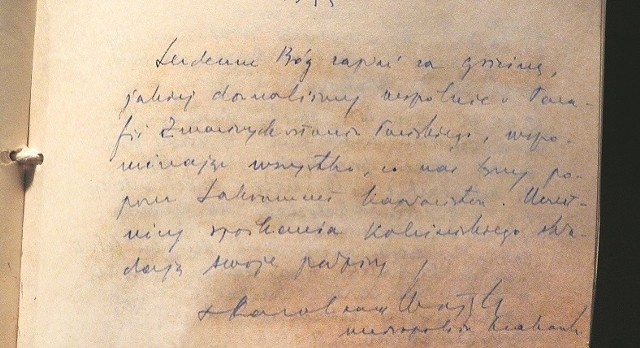 Serdeczne Bóg zapłać za gościnę,
jakiej doznaliśmy wspólnie w Para-
fii Zmartwychwstania Pańskiego, wspo-
minając wszystko, co nas łączy po-
przez Sakrament kapłaństwa. Uczest-
nicy spotkania koleżeńskiego skła-
dają swoje podpisy
+ Karol kard Wojtyła
metropolita krakowski